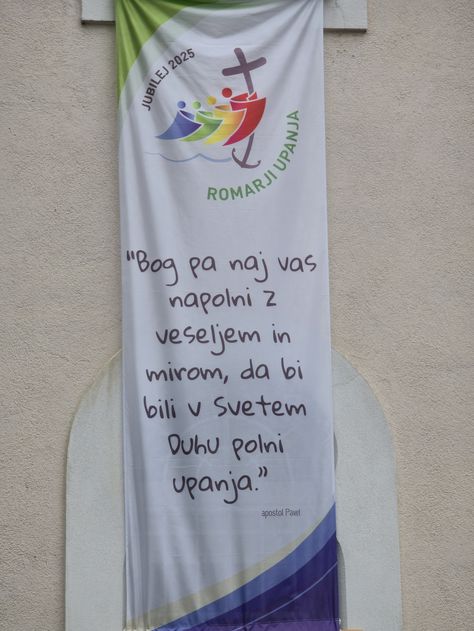 JUBILEJ 2025
ROMARJI UPANJA
"Bog pa naj vas
napolni z
veseljem in
mirom, da bi
bili v Svetem
Duhu polni
upanja."
apostol Pawl